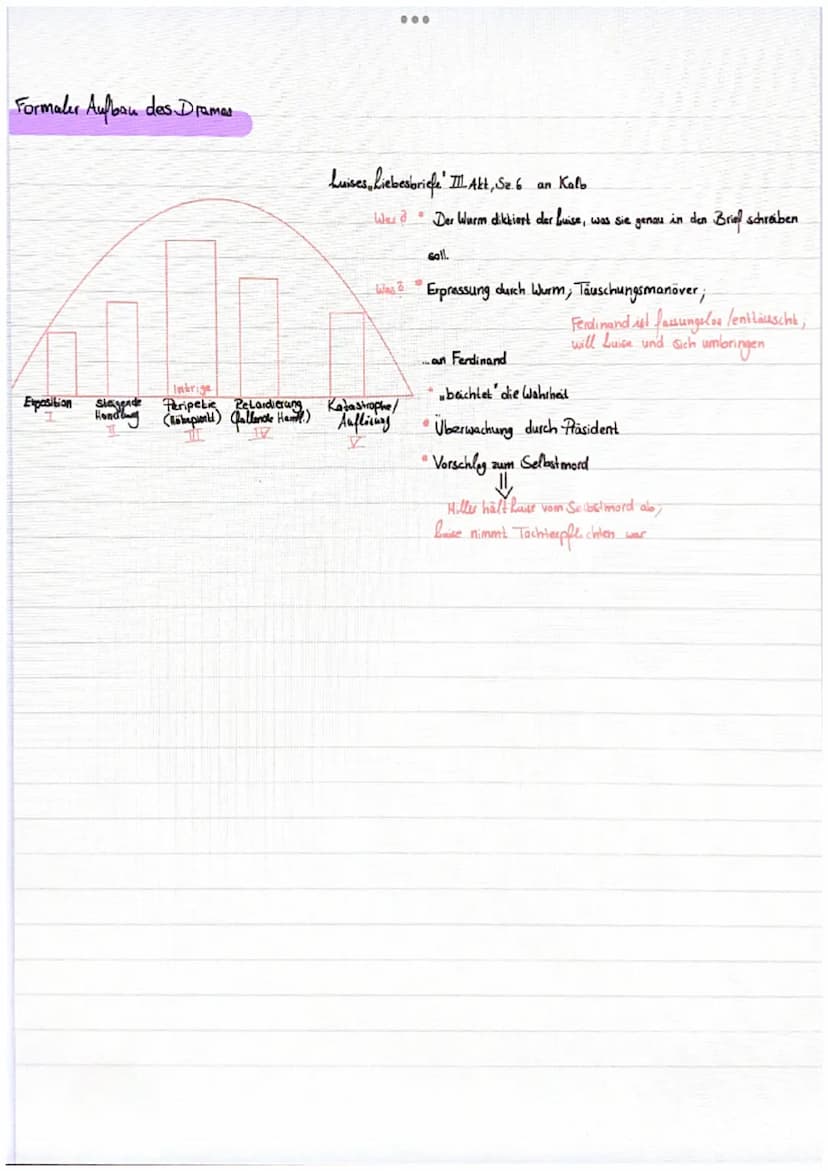 Formaler Aufbau des Dramas
Luises „Liebesbriefe' III. Akt, Sz. 6 an Kalb
Was? • Der Wurm diktiert der Luise, was sie genau in den Brief schreiben
soll.
Was? • Erpressung durch Wurm; Täuschungsmanöver;
Ferdinand ist fassungslos/enttäuscht,
will Luise und sich umbringen
...an Ferdinand
• „beichtet" die Wahrheit
• Überwachung durch Präsident
• Vorschlag zum Selbstmord
⇓
Miller hält Luise vom Selbstmord ab;
Luise nimmt Tochterpflichten war
Intrige
Exposition
I
Steigende
Handlung
II
Peripetie
(Höhepunkt)
III
Retardierung
(fallende Handl.)
IV
Katastrophe/
Auflösung
V